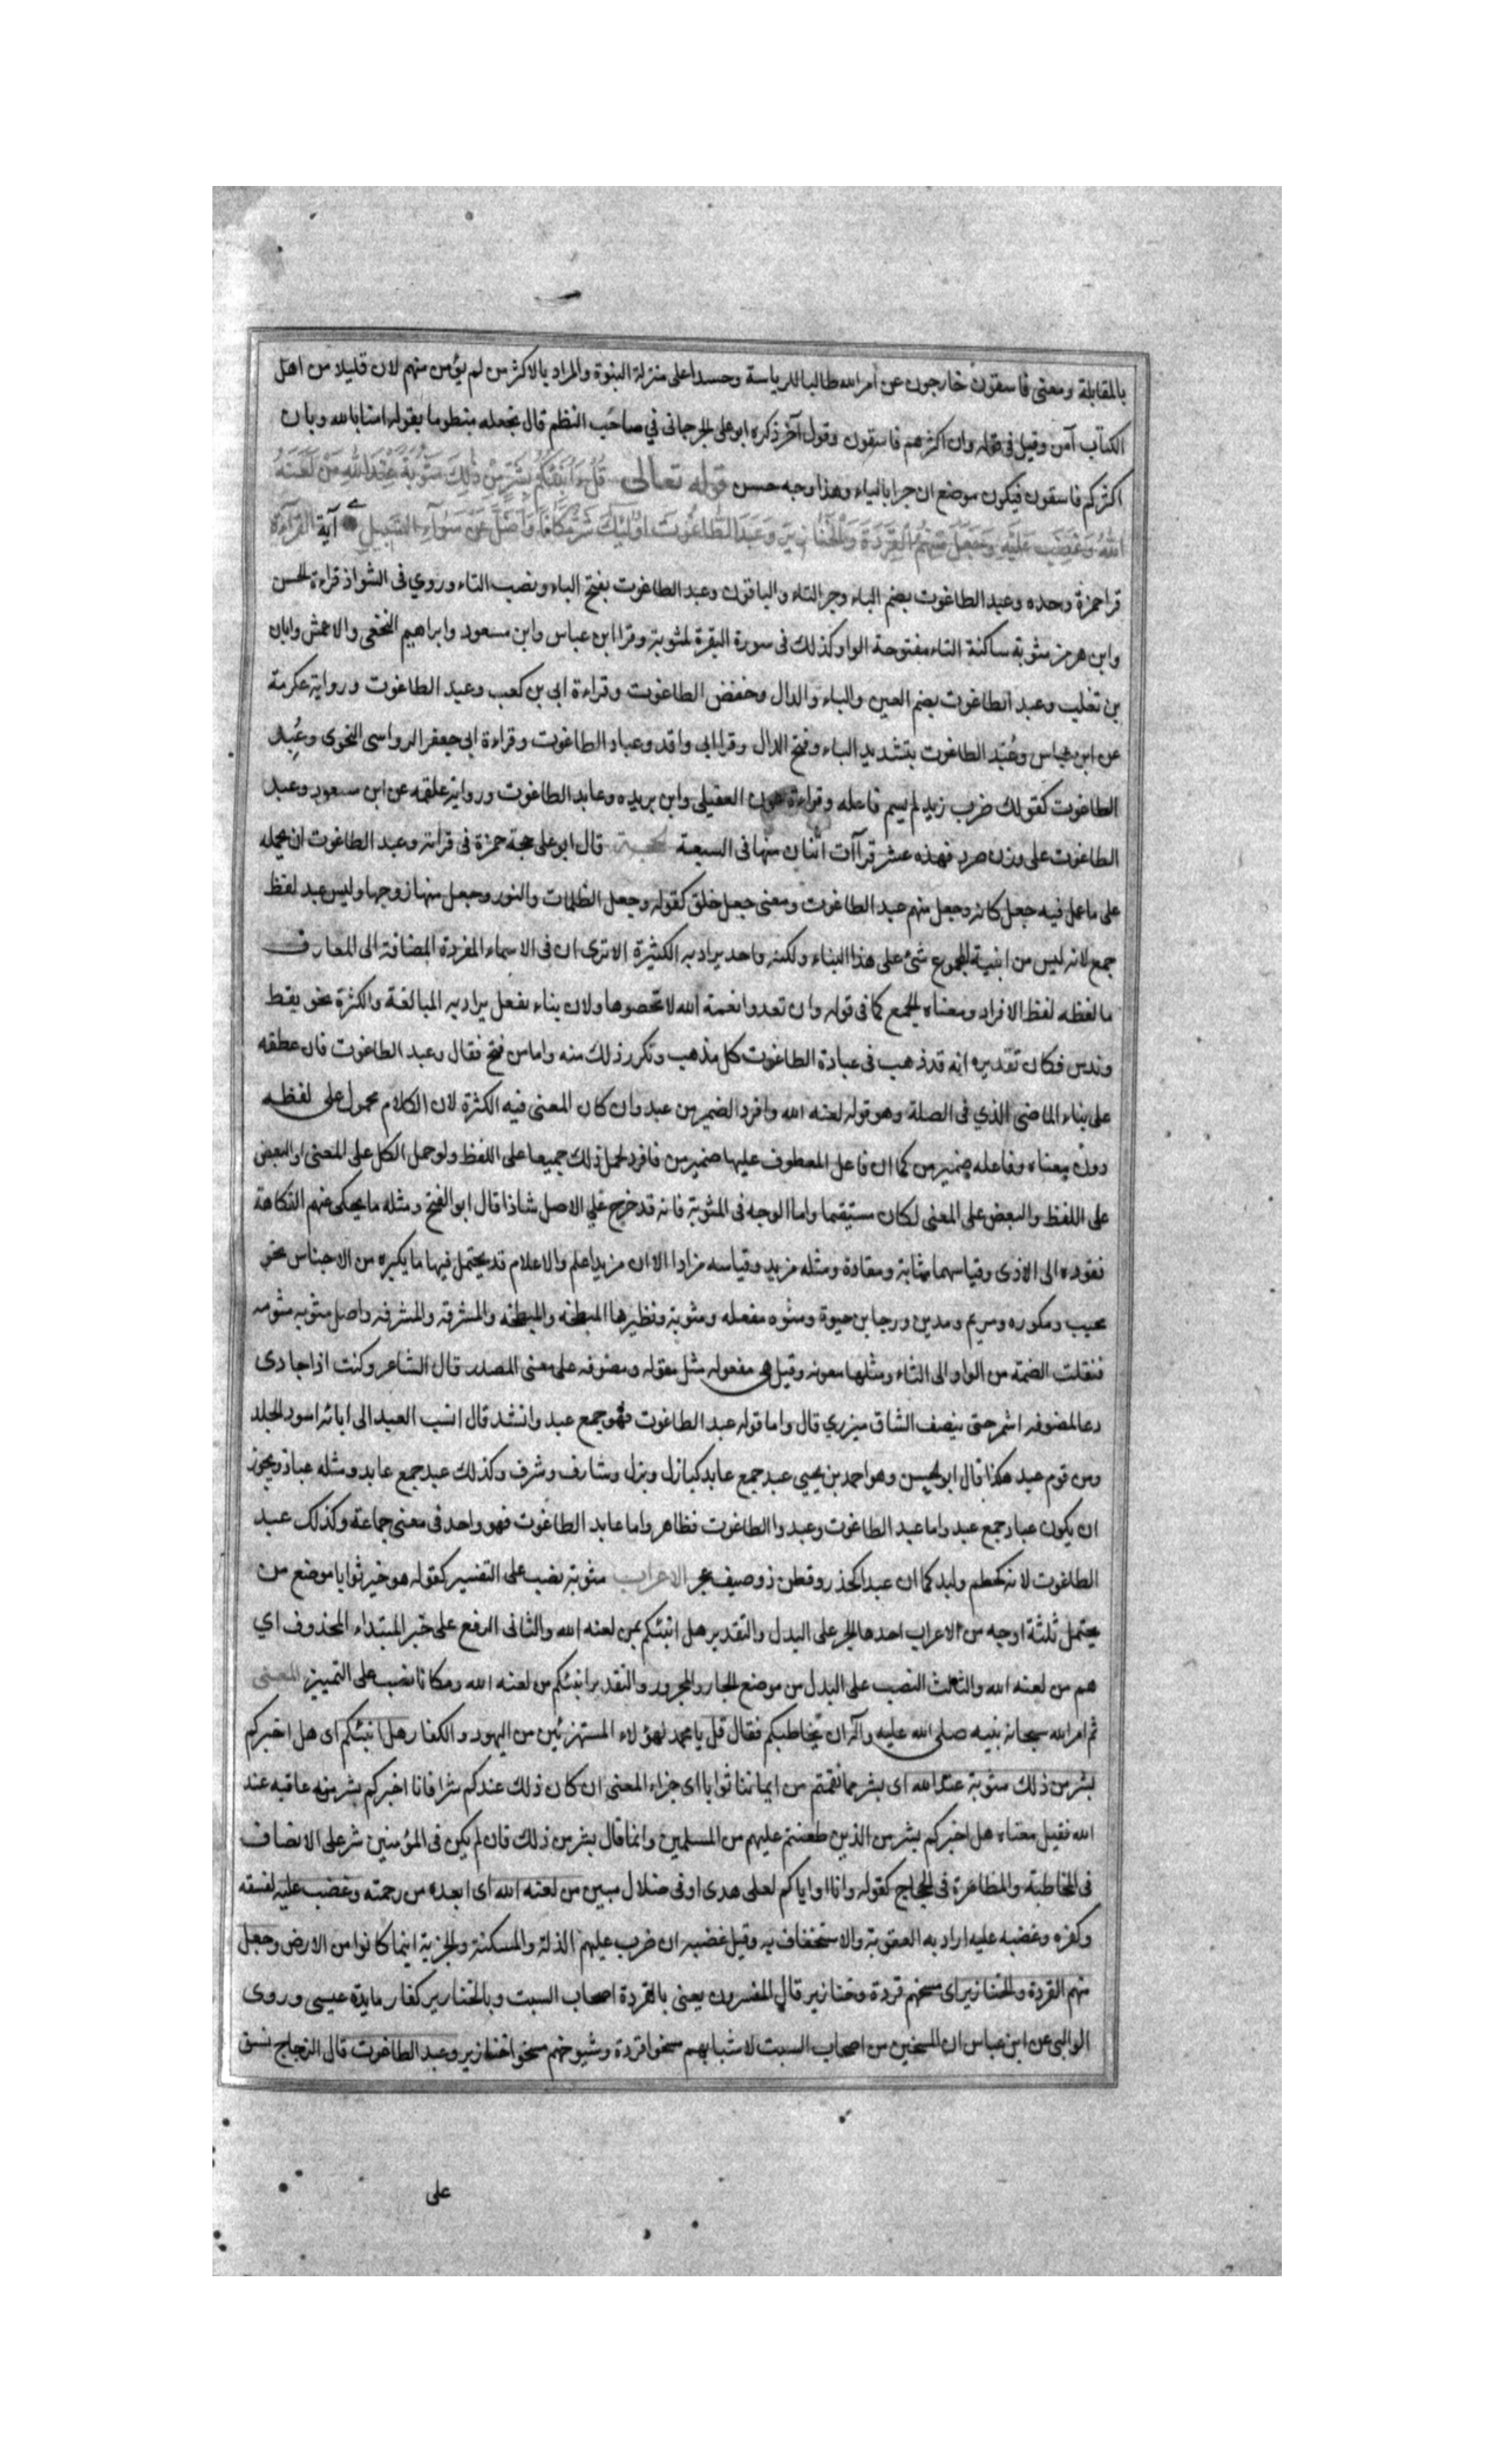 بالمقابلة ومعنى فاسقون خارجون عن امر الله طالبا للرياسة وحسدا على منزلة النبوة والمراد بالاكثر من لم يؤمن منهم لان قليلا من اهل
الكتاب آمن وقيل في قوله وان اكثرهم فاسقون وقول آخر ذكره ابو على الجرجاني في صاحب النظم قال تجعله منظوما بقوله امنا بالله وبان
اكثركم فاسقون فيكون موضع ان جرا بالباء وهذا وجه حسن قوله تعالى قُلْ هَلْ اُنَبِّئُكُمْ بِشَرٍّ مِّنْ ذٰلِكَ مَثُوبَةً عِنْدَ اللهِ مَنْ لَعَنَهُ
اللهُ وَغَضِبَ عَلَيْهِ وَجَعَلَ مِنْهُمُ الْقِرَدَةَ وَالْخَنَازِيرَ وَعَبَدَ الطَّاغُوتَ اُولٰئِكَ شَرٌّ مَكَانًا وَاَضَلُّ عَنْ سَوَآءِ السَّبِيلِ آية القراءة
قرا حمزة وحده وعبد الطاغوت بضم الباء وجر التاء والباقون وعبد الطاغوت بفتح الباء ونصب التاء وروي في الشواذ قراءة الحسن
وابن هرمز مثوبة ساكنة الثاء مفتوحة الواو وكذلك في سورة البقرة لمثوبة وقرا ابن عباس وابن مسعود وابراهيم النخعي والاعمش وابان
بن تغلب وعبد الطاغوت بضم العين والباء والدال وخفض الطاغوت وقراءة ابي بن كعب وعبد الطاغوت ورواية عكرمة
عن ابن عباس وعُبّد الطاغوت بتشديد الباء وفتح الدال وقرا ابي واقد وعباد الطاغوت وقراءة ابي جعفر الرواسي النحوى وعُبِد
الطاغوت كقولك ضرب زيد لم يسم فاعله وقراءة عون العقيلى وابن بريده وعابد الطاغوت ورواية علقمه عن ابن مسعود وعبد
الطاغوت على وزن صرد فهذه عشر قرآآت اثنان منها في السبعة الحجة قال ابو على حجة حمزة في قراته وعبد الطاغوت انه يحمله
على ما عمل فيه جعل كانه وجعل منهم عبد الطاغوت ومعنى جعل خلق كقوله وجعل الظلمات والنور وجعل منها زوجها وليس عبد لفظ
جمع لانه ليس من ابنية الجموع شئ على هذا البناء ولكنه واحد يراد به الكثيرة الا ترى ان في الاسماء المفردة المضافة الى المعارف
ما لفظه لفظ الافراد ومعناه الجمع كما في قوله وان تعدوا نعمة الله لا تحصوها ولان بناء فعل يراد به المبالغة والكثرة نحو يقظ
وندس فكان تقديره انه قد ذهب في عبادة الطاغوت كل مذهب وتكرر ذلك منه واما من فتح فقال وعبد الطاغوت فانه عطفه
على بناء الماضي الذي في الصلة وهو قوله لعنه الله وافرد الضمير من عبد وان كان المعنى فيه الكثرة لان الكلام محمول على لفظه
دون معناه وفاعله ضمير من كما ان فاعل المعطوف عليها ضمير من فافرد لحمل ذلك جميعا على اللفظ ولو حمل الكل على المعنى او البعض
على اللفظ والبعض على المعنى لكان مستقيما واما الوجه في المثوبة فانه قد خرج على الاصل شاذا قال ابو الفتح ومثله ما يحكى عنهم الفكاهة
فقوده الى الاذى وقياسهما مثابة ومقادة ومثله مزيد وقياسه مزادا الا ان مزيد اعلم والاعلام قد يحتمل فيها ما يكره من الاجناس نحو
محبب ومكوره ومريم ومدين ورجا بن حيوة ومثوه مفعله ومثوبة ونظيرها المبطخه والمبطخه والمشرقه والمشرقه واصل مثوبه مثوبه
فنقلت الضمة من الواو الى الثاء ومثلها معونه وقيل هي مفعوله مثل مقوله ومضوفه على معنى المصدر قال الشاعر وكنت اذا جارى
دعا لمضوفه اشمر حتى ينصف الساق ميزري قال واما قوله عبد الطاغوت فهو جمع عبد وانشد قال انسب العبد الى ابائه اسود الجلد
ومن قوم عبد هكذا قال ابو الحسن وهو احمد بن يحيى عبد جمع عابد كبازل وبزل وشارف وشرف وكذلك عبد جمع عابد ومثله عباد ويجوز
ان يكون عباد جمع عبد واما عبد الطاغوت وعبدوا الطاغوت فظاهر واما عابد الطاغوت فهو واحد في معنى جماعة وكذلك عبد
الطاغوت لانه كحطم ولبد كما ان عبد كحذر وفطن ذو وصيف الاعراب مثوبة نصب على التفسير كقوله هو خير ثوابا موضع من
يحتمل ثلثة اوجه من الاعراب احدها الجر على البدل والتقدير هل انبئكم بمن لعنه الله والثاني الرفع على خبر المبتداء المحذوف اي
هم من لعنه الله والثالث النصب على البدل من موضع الجار والمجرور والتقدير انبئكم من لعنه الله ومكانا نصب على التمييز المعنى
ثم امر الله سبحانه نبيه صلى الله عليه وآله ان يخاطبكم فقال قل يا محمد لهؤلاء المستهزئين من اليهود والكفار هل انبئكم اى هل اخبركم
بشر من ذلك مثوبة عند الله اى بشر مما نقمتم من ايماننا ثوابا اى جزاء المعنى ان كان ذلك عندكم شرا فانا اخبركم بشر منه عاقبه عند
الله فقيل معناه هل اخبركم بشر من الذين طعنتم عليهم من المسلمين وانما قال بشر من ذلك فان لم يكن في المؤمنين شر على الانصاف
في المخاطبة والمظاهرة في الحجاج كقوله وانا او اياكم لعلى هدى او في ضلال مبين من لعنه الله اى ابعده من رحمته وغضب عليه لفسقه
وكفره وغضبه عليه اراد به العقوبة والاستخفاف به وقيل غضبه ان ضرب عليهم الذلة والمسكنة والجزية اينما كانوا من الارض وجعل
منهم القردة والخنازير اى مسخهم قردة وخنازير قال المفسرون يعنى بالقردة اصحاب السبت وبالخنازير كفار مايدة عيسى وروى
الوالبي عن ابن عباس ان المسخين من اصحاب السبت لا شبابهم مسخوا قردة وشيوخهم مسخوا خنازير وعبد الطاغوت قال الزجاج نسق
على